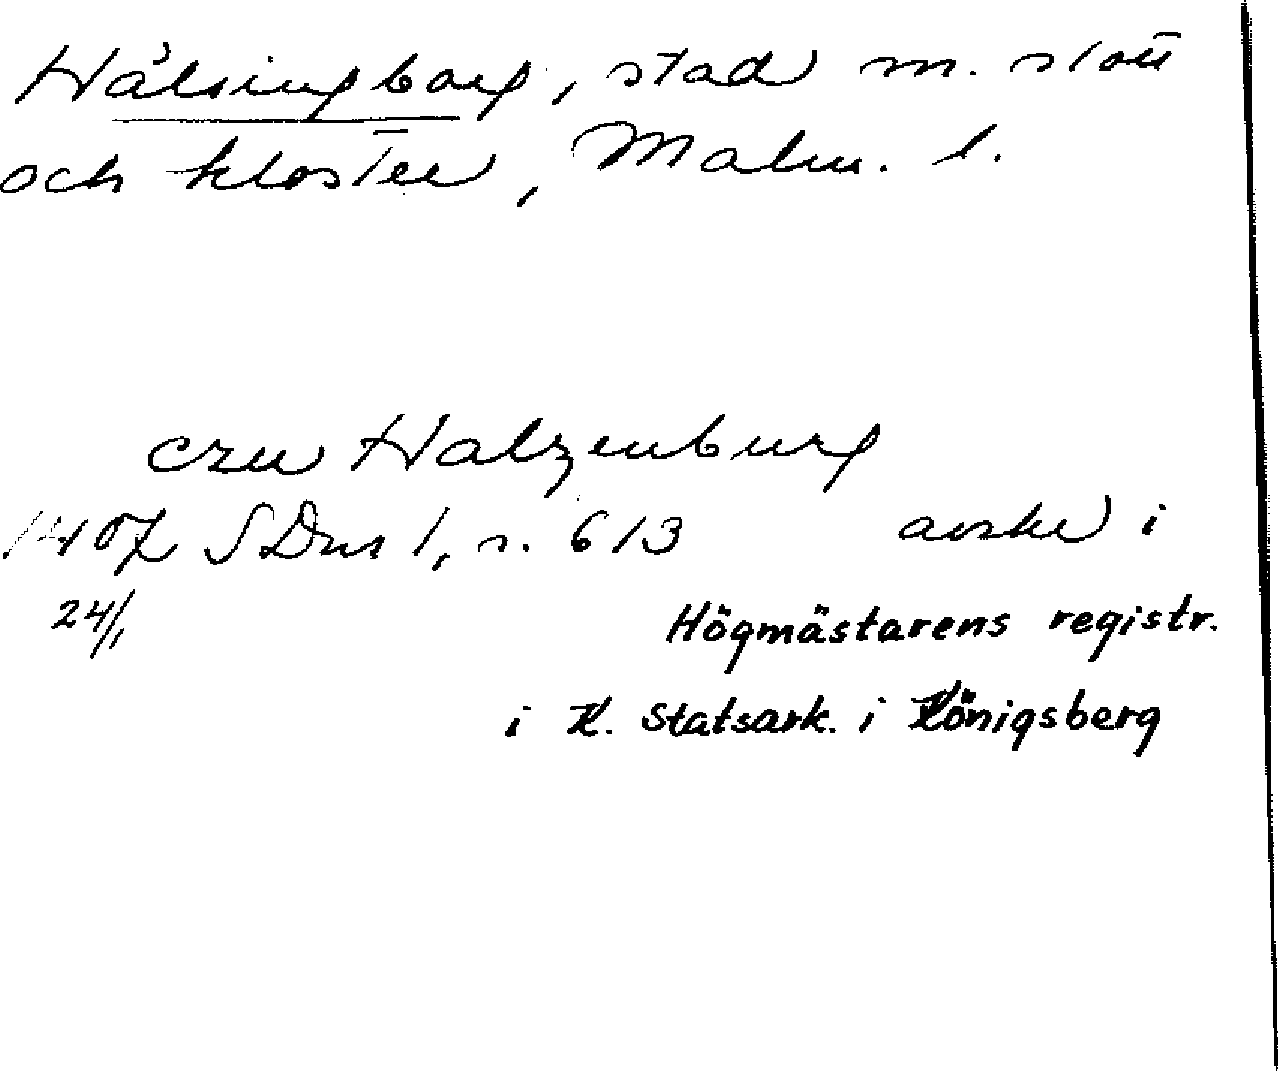 Hälsingborg, stad m. slott
och kloster, Malm. l.
czu Halzenburg
1407 SDns 1, s. 613 avskr i
24/1 Högmästarens registr.
i K. Statsark. i Königsberg